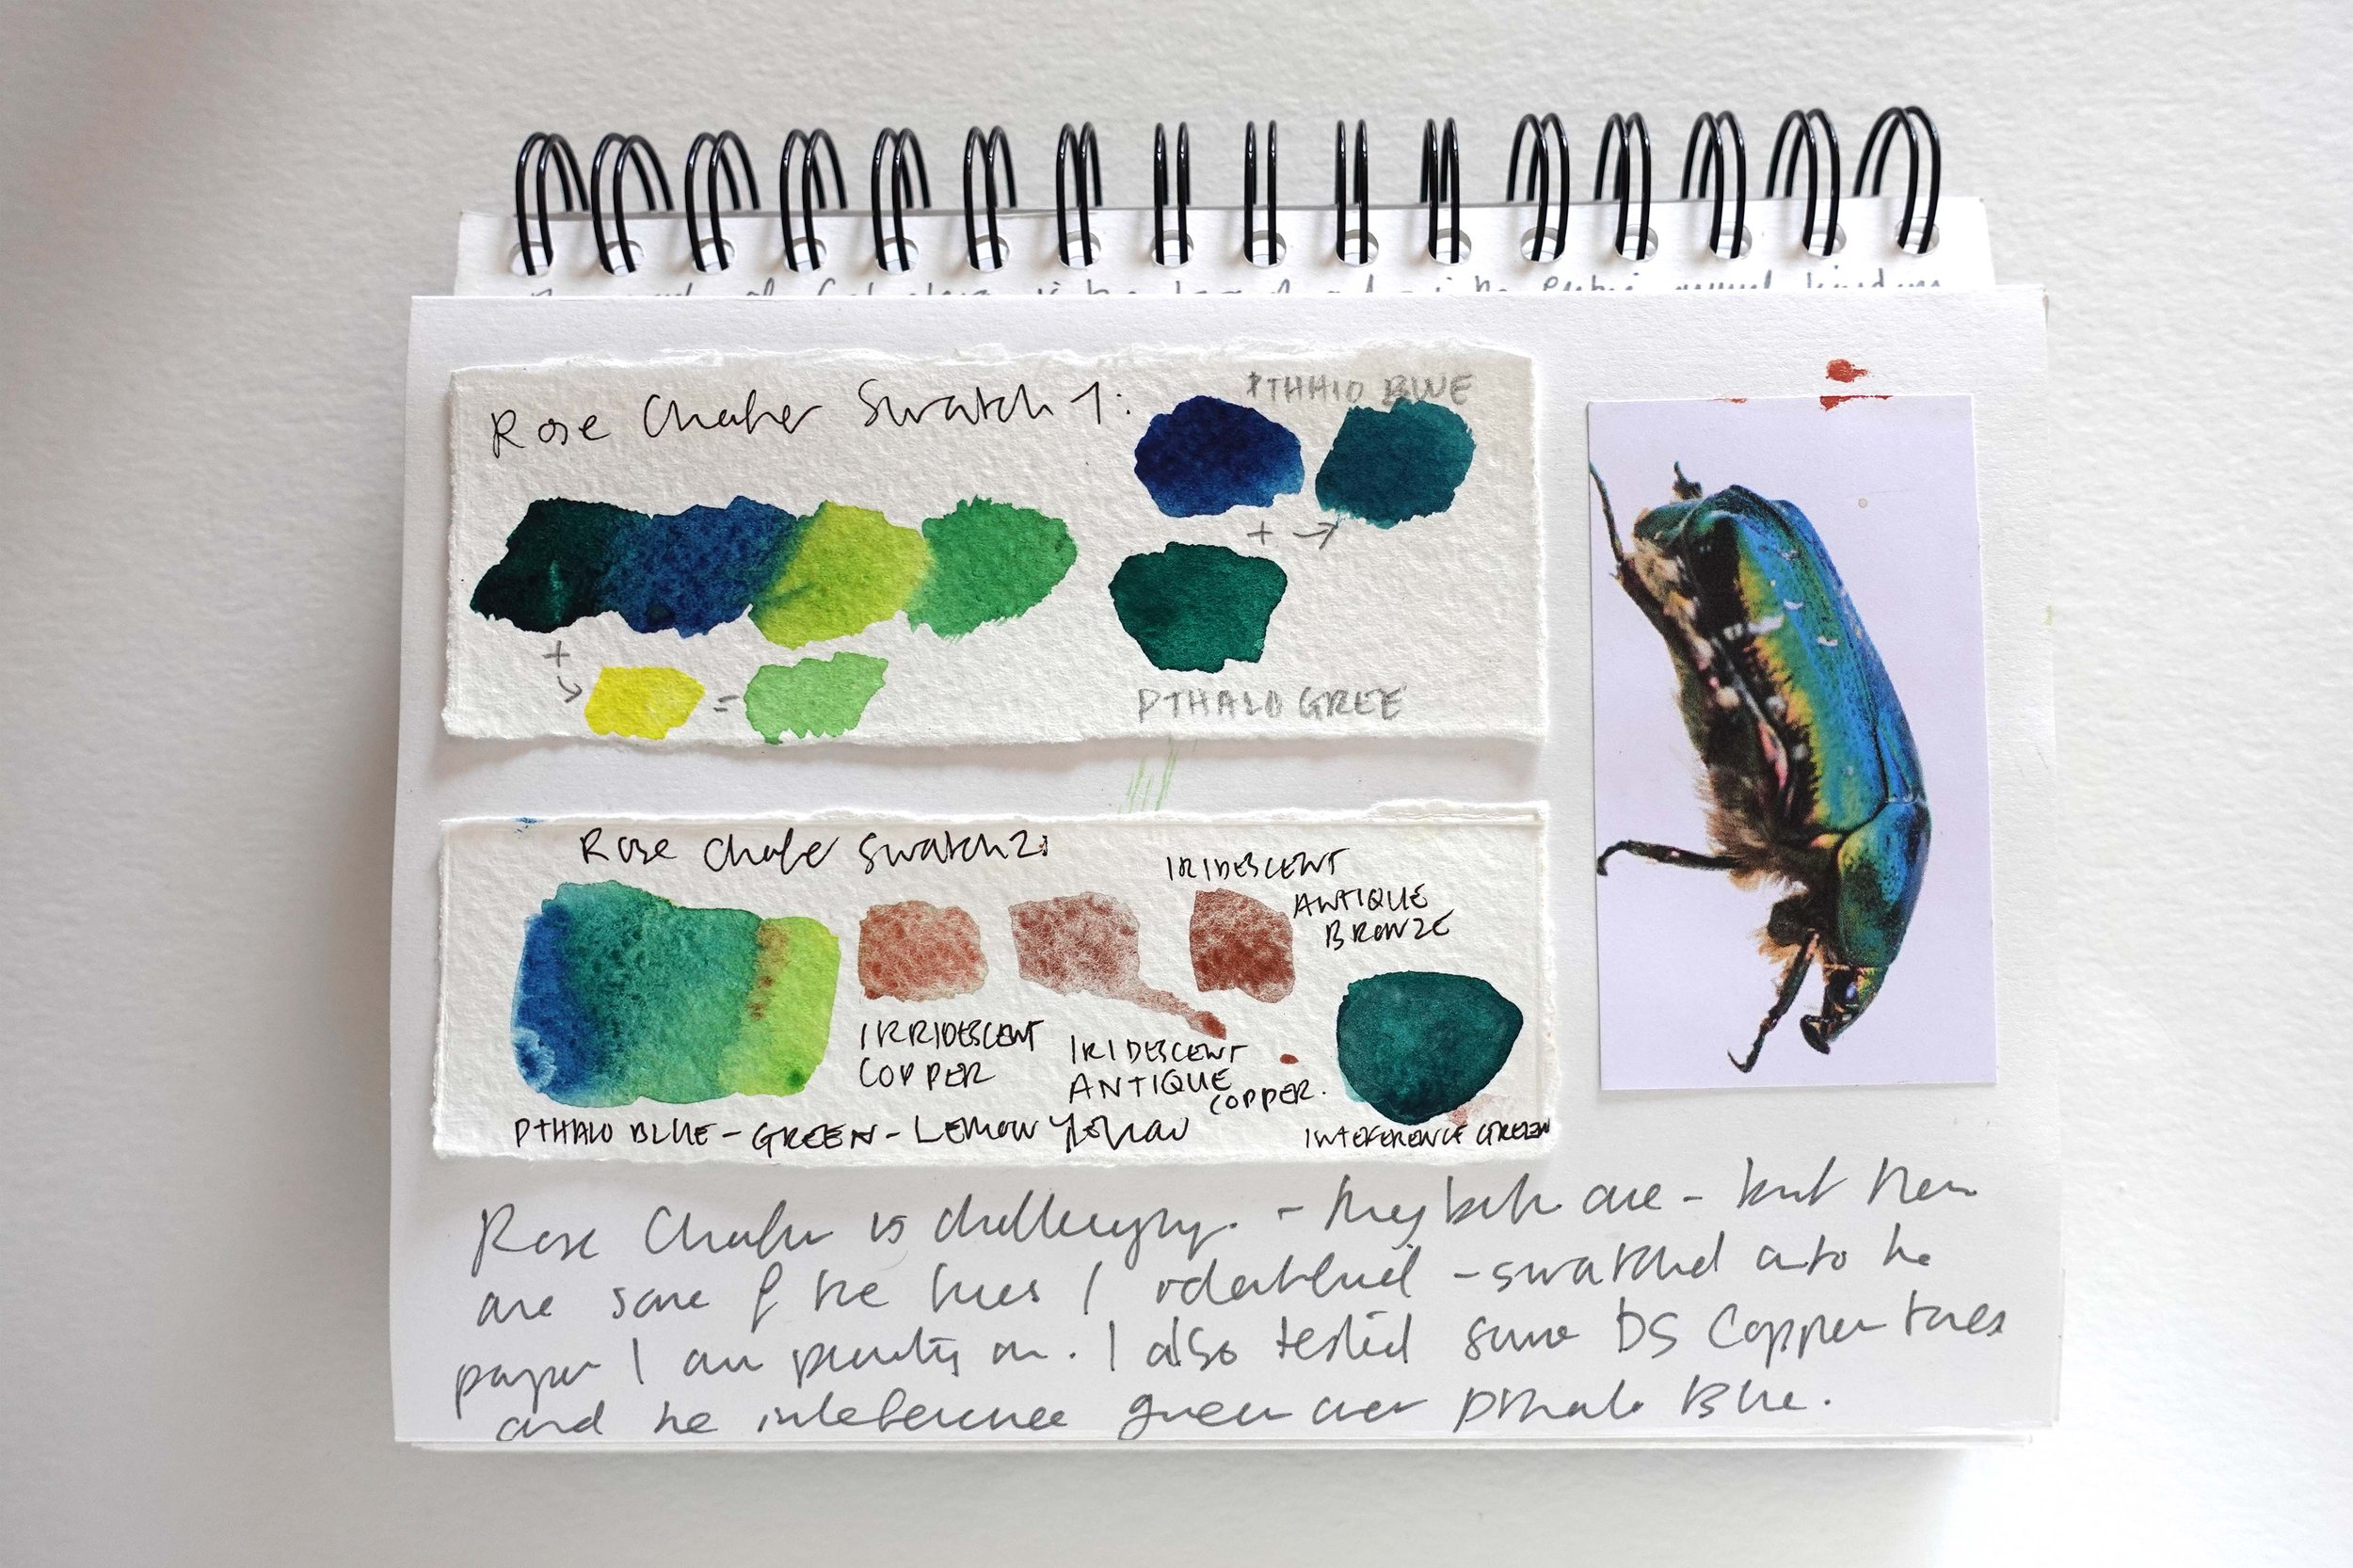 Rose Chafer Swatch 1:
PTHALO BLUE
+ →
+
=
PTHALO GREE
Rose Chafer Swatch 2:
IRIDESCENT
ANTIQUE
BRONZE
IRRIDESCENT
COPPER
IRIDESCENT
ANTIQUE
COPPER.
PTHALO BLUE - GREEN - LEMON YELLOW
INTEFERENCE GREEN
Rose Chafer is challenging. - they both are - but these
are some of the hues I identified - swatched onto the
paper I am painting on. I also tested some DS Copper tones
and the inteference green over Pthalo Blue.